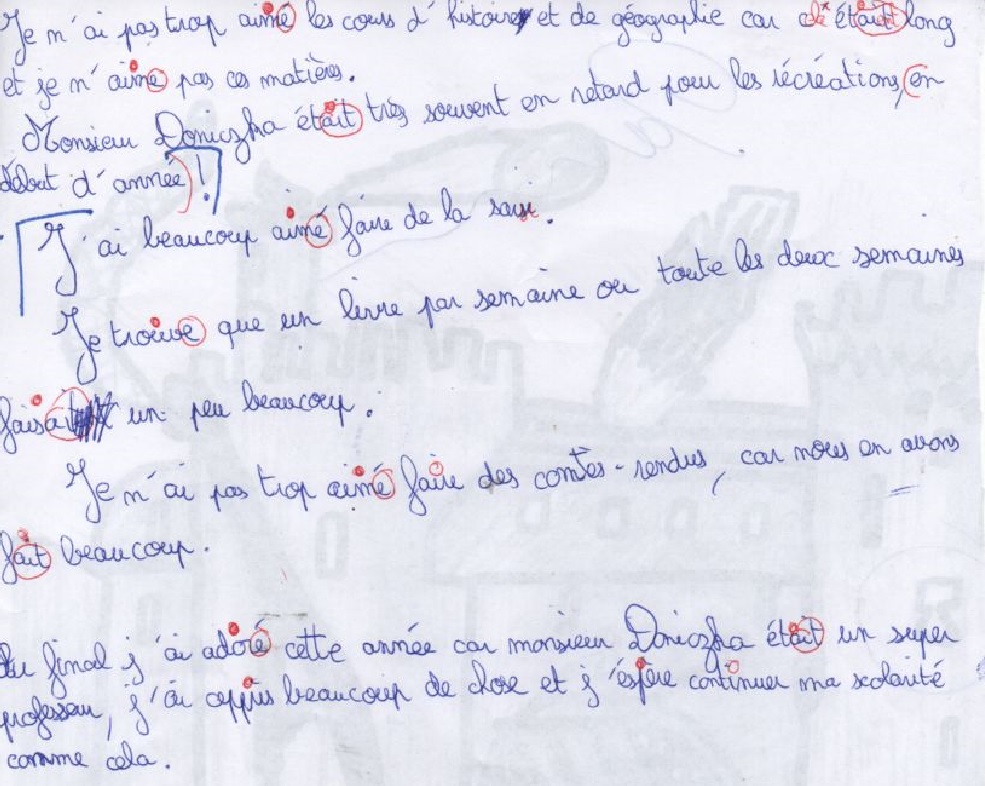 Je m'ai pas trop aimé les cours d'histoire et de géographie car c'était long
et je m'aime pas ces matières.
Monsieur Doniczka était très souvent en retard pour les récréations, (en
début d'année)!
J'ai beaucoup aimé faire de la
Je trouve que un livre par semaine ou toute les deux semaines
faisait un peu beaucoup.
Je m'ai pas trop aimé faire des comtes-rendus, car nous en avons
fait beaucoup.
Au final j'ai adoré cette année car monsieur Doniczka était un super
professeur, j'ai appris beaucoup de chose et j'éspère continuer ma scolarité
comme cela.